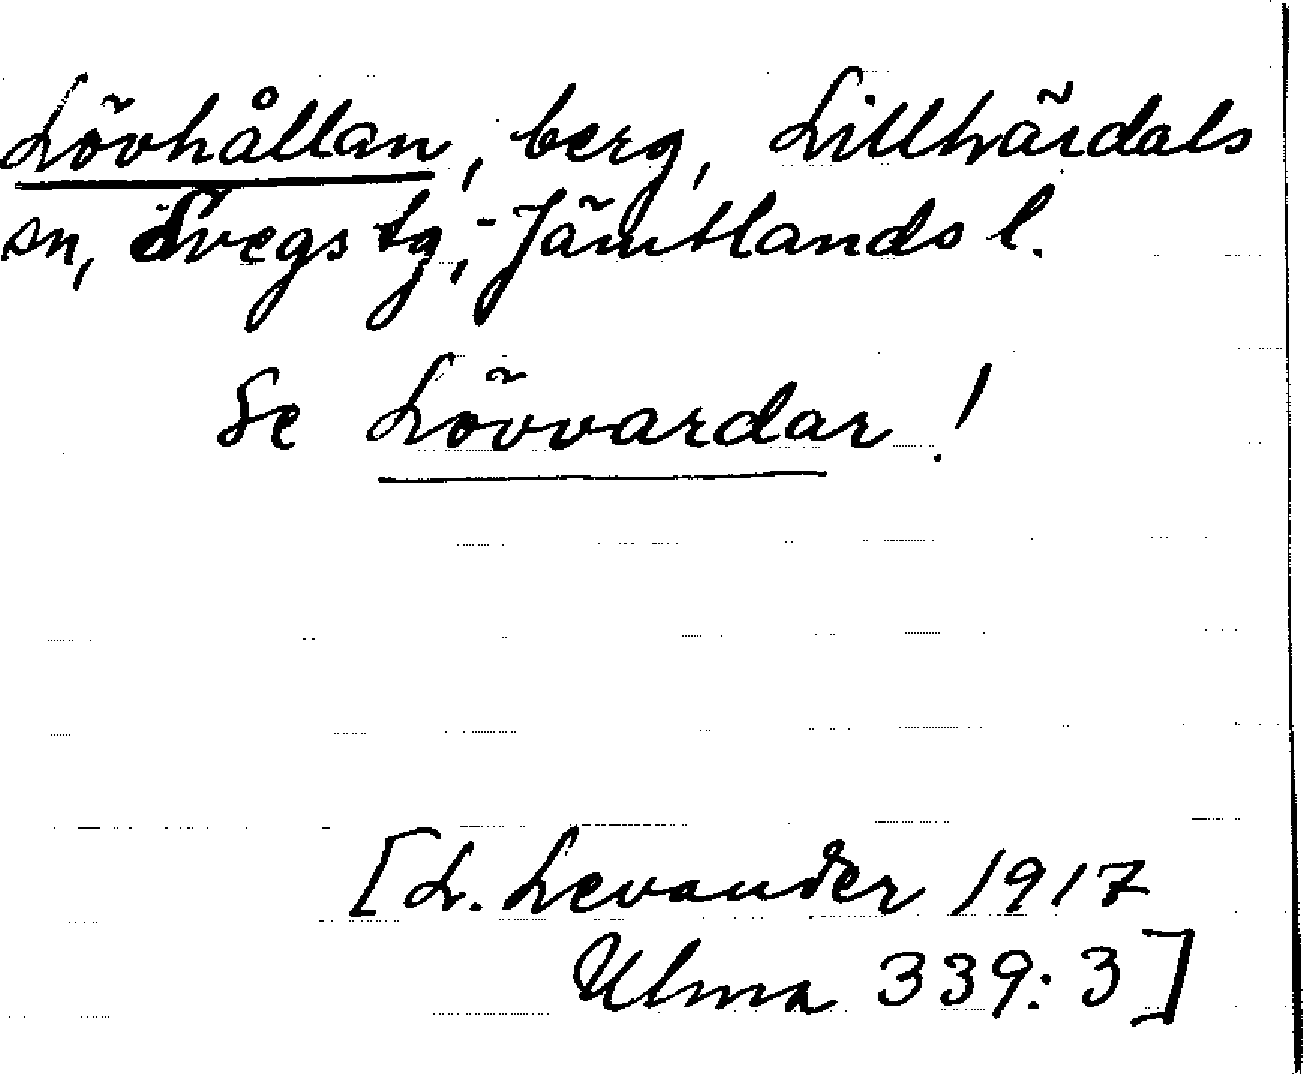 Lövhållan, berg, Lillhärdals
sn, Svegs tg, Jämtlands l.
Se Lövvardar!
[L. Levander 1917
Ulma 339:3]